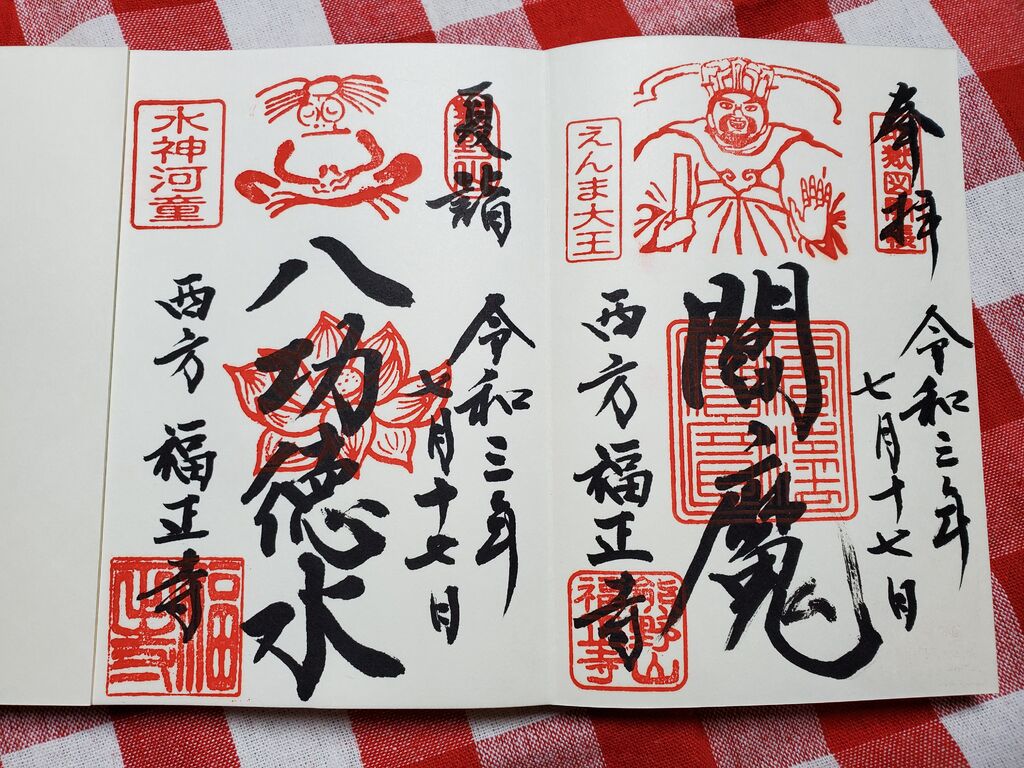 奉拝
令和三年
七月十七日
閻魔
えんま大王
西方 福正寺
熊野山
福正寺
夏詣
令和三年
七月十七日
八功徳水
水神河童
西方 福正寺
福正寺